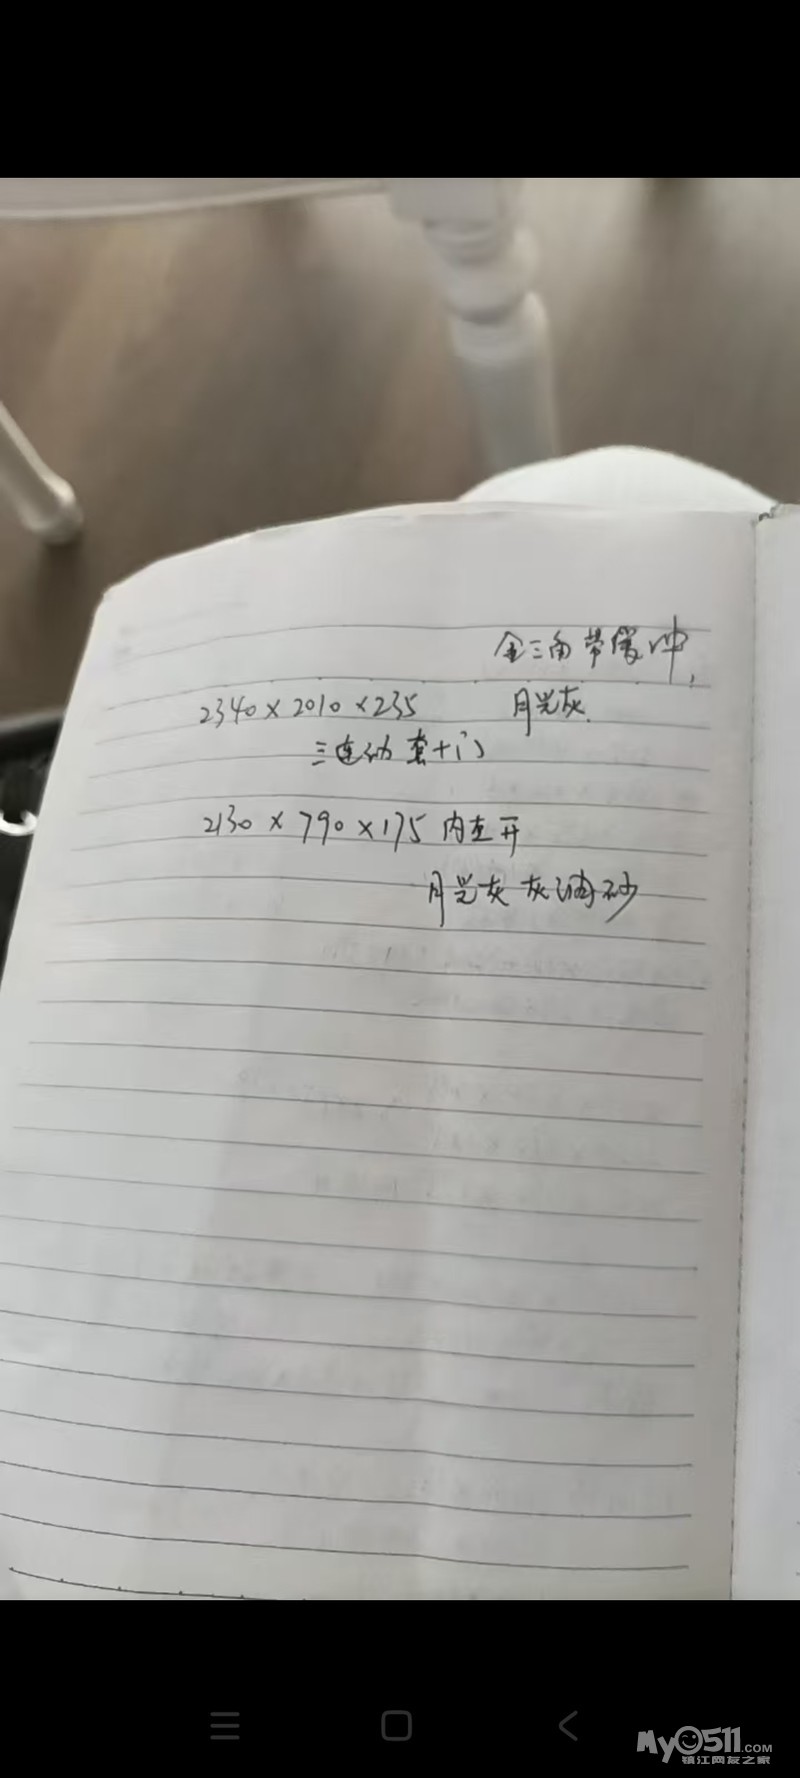 金三角带缓冲,
2340×2010×235 月光灰.
三连动 套+门
2130×790×175 内左开
月光灰 灰油砂
MyO511.COM
镇江网友之家